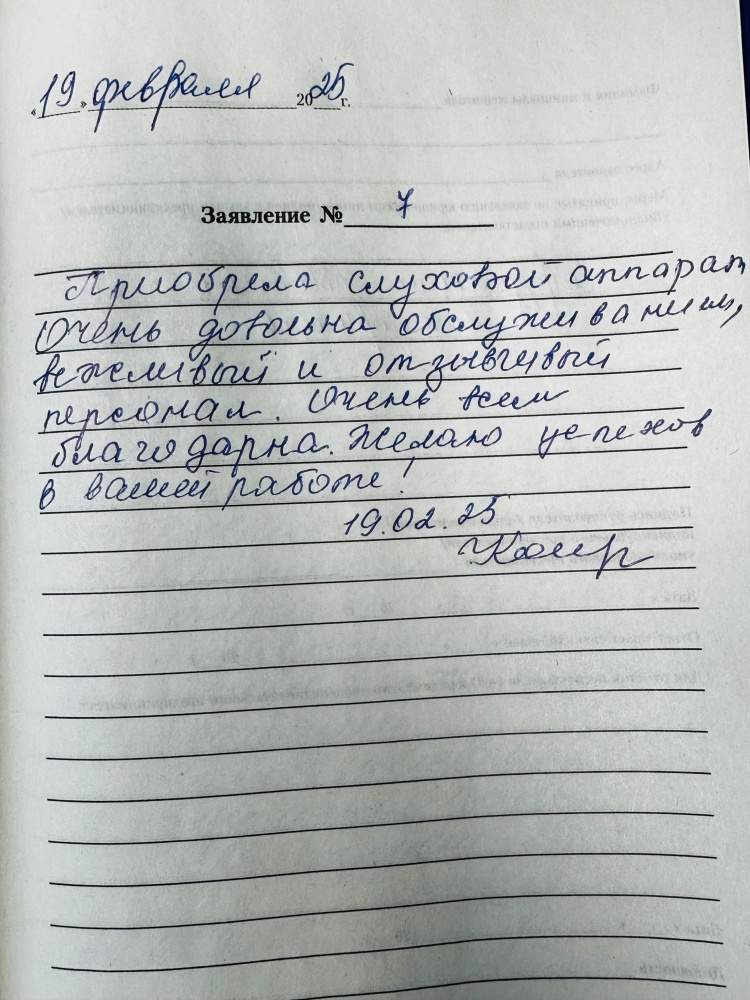 «19» февраля 2025 г.
Заявление № 7
Приобрела слуховой аппарат
Очень довольна обслуживанием,
вежливый и отзывчивый
персонал. Очень всем
благодарна. Желаю успехов
в вашей работе!
19.02.25